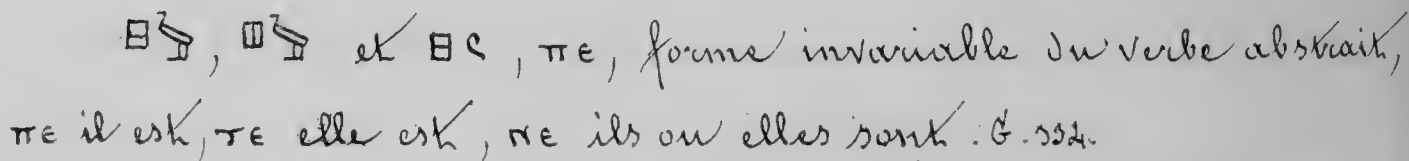 , et , ⲡⲉ, forme invariable du verbe abstrait,
ⲡⲉ il est, ⲧⲉ elle est, ⲛⲉ ils ou elles sont. G.